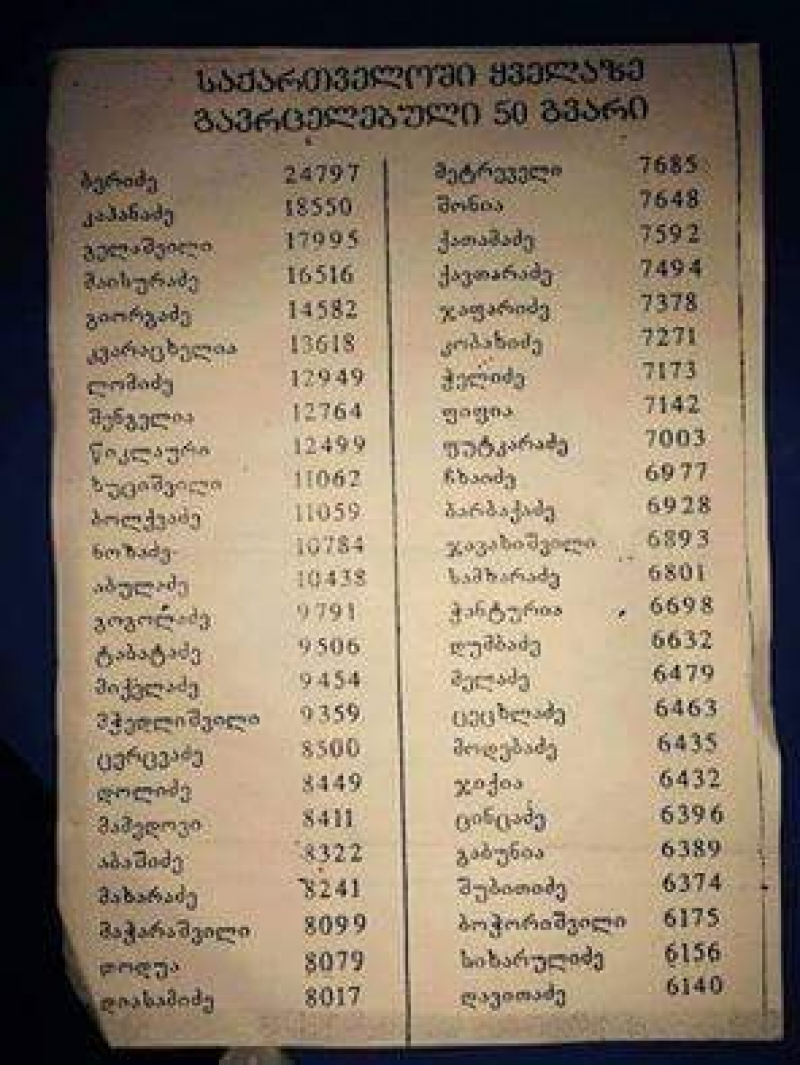 საქართველოში ყველაზე
გავრცელებული 50 გვარი
ბერიძე 24797
კაპანაძე 18550
გელაშვილი 17995
მაისურაძე 16516
გიორგაძე 14582
კვარაცხელია 13618
ლომიძე 12949
შენგელია 12764
წიკლაური 12499
ხუციშვილი 11062
ბოლქვაძე 11059
ნოზაძე 10784
აბულაძე 10438
გოგოლაძე 9791
ტაბატაძე 9506
მიქელაძე 9454
მჭედლიშვილი 9359
ცერცვაძე 8500
დოლიძე 8449
მამედოვი 8411
აბაშიძე 8322
მახარაძე 8241
მაჭარაშვილი 8099
დოდუა 8079
დიასამიძე 8017
მეტრეველი 7685
შონია 7648
ქათამაძე 7592
ქავთარაძე 7494
ჯაფარიძე 7378
კობახიძე 7271
ჭელიძე 7173
ფიფია 7142
ფუტკარაძე 7003
ჩხაიძე 6977
ბარბაქაძე 6928
ჯავახიშვილი 6893
სამხარაძე 6801
ჭანტურია 6698
დუმბაძე 6632
მელაძე 6479
ცეცხლაძე 6463
მოდებაძე 6435
ჯიქია 6432
ცინცაძე 6396
გაბუნია 6389
შუბითიძე 6374
ბოჭორიშვილი 6175
სიხარულიძე 6156
დავითაძე 6140